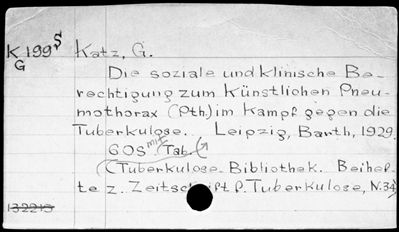 K 199 S Katz, G.
G
Die soziale und klinische Be-
rechtigung zum Künstlichen Pneu-
mothorax (Pth.) im Kampf gegen die
Tuberkulose. Leipzig, Barth, 1929.
60S mit Tab.
(Tuberkulose-Bibliothek. Beihef-
te z. Zeitschrift f. Tuberkulose, N.34)
132213